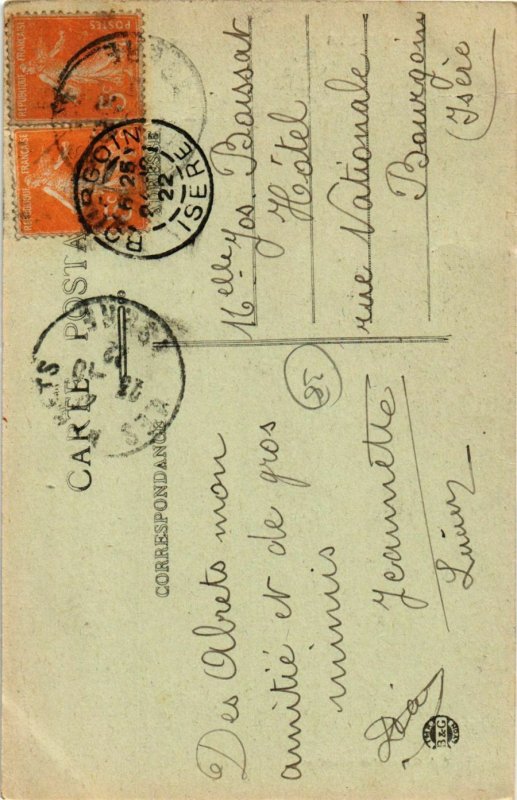 CARTE POSTA
CORRESPONDANCE
Des Abrets mon
amitié et de gros
mimis
Jeannette
85
Melle Jos Boissat
Hôtel
rue Nationale
Bourgoin
Isère
REPUBLIQUE FRANÇAISE
POSTES
5c
REPUBLIQUE FRANÇAISE
BOURGOIN
22
ISERE
B&G